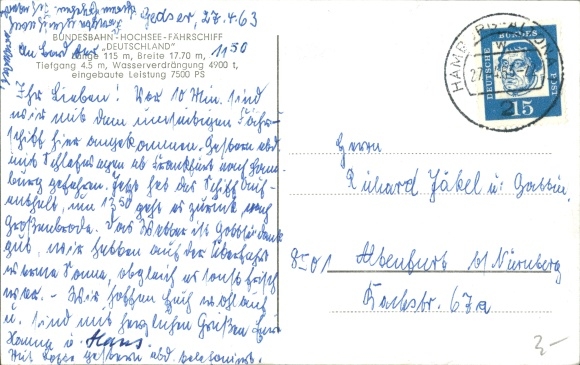 Gedser, 27.4.63
BUNDESBAHN-HOCHSEE-FÄHRSCHIFF
„DEUTSCHLAND"
Länge 115 m, Breite 17.70 m,
Tiefgang 4.5 m, Wasserverdrängung 4900 t,
eingebaute Leistung 7500 PS
An Bord 11 50
Ihr Lieben! Vor 10 Min. sind
wir mit dem umseitigen Fähr-
schiff hier angekommen. Gestern abd.
mit Schlafwagen ab Frankfurt nach Ham-
burg gefahren. Jetzt hat das Schiff Auf-
enthalt, um 13 50 geht es zurück nach
Großenbrode. Das Wetter ist Gottseidank
gut, wir hatten auf der Überfahrt
warme Sonne, obgleich es sonst frisch
war. - Wir hoffen Euch wohlauf
u. sind mit herzlichen Grüßen Eure
Hanna u. Hans.
Mit gestern abd. telefoniert.
HAMBURG-ALTONA
27.4.63
DEUTSCHE BUNDESPOST
15
Herrn
Richard Jäkel u. Gattin
8501 Altenfurt b/Nürnberg
67a
3-